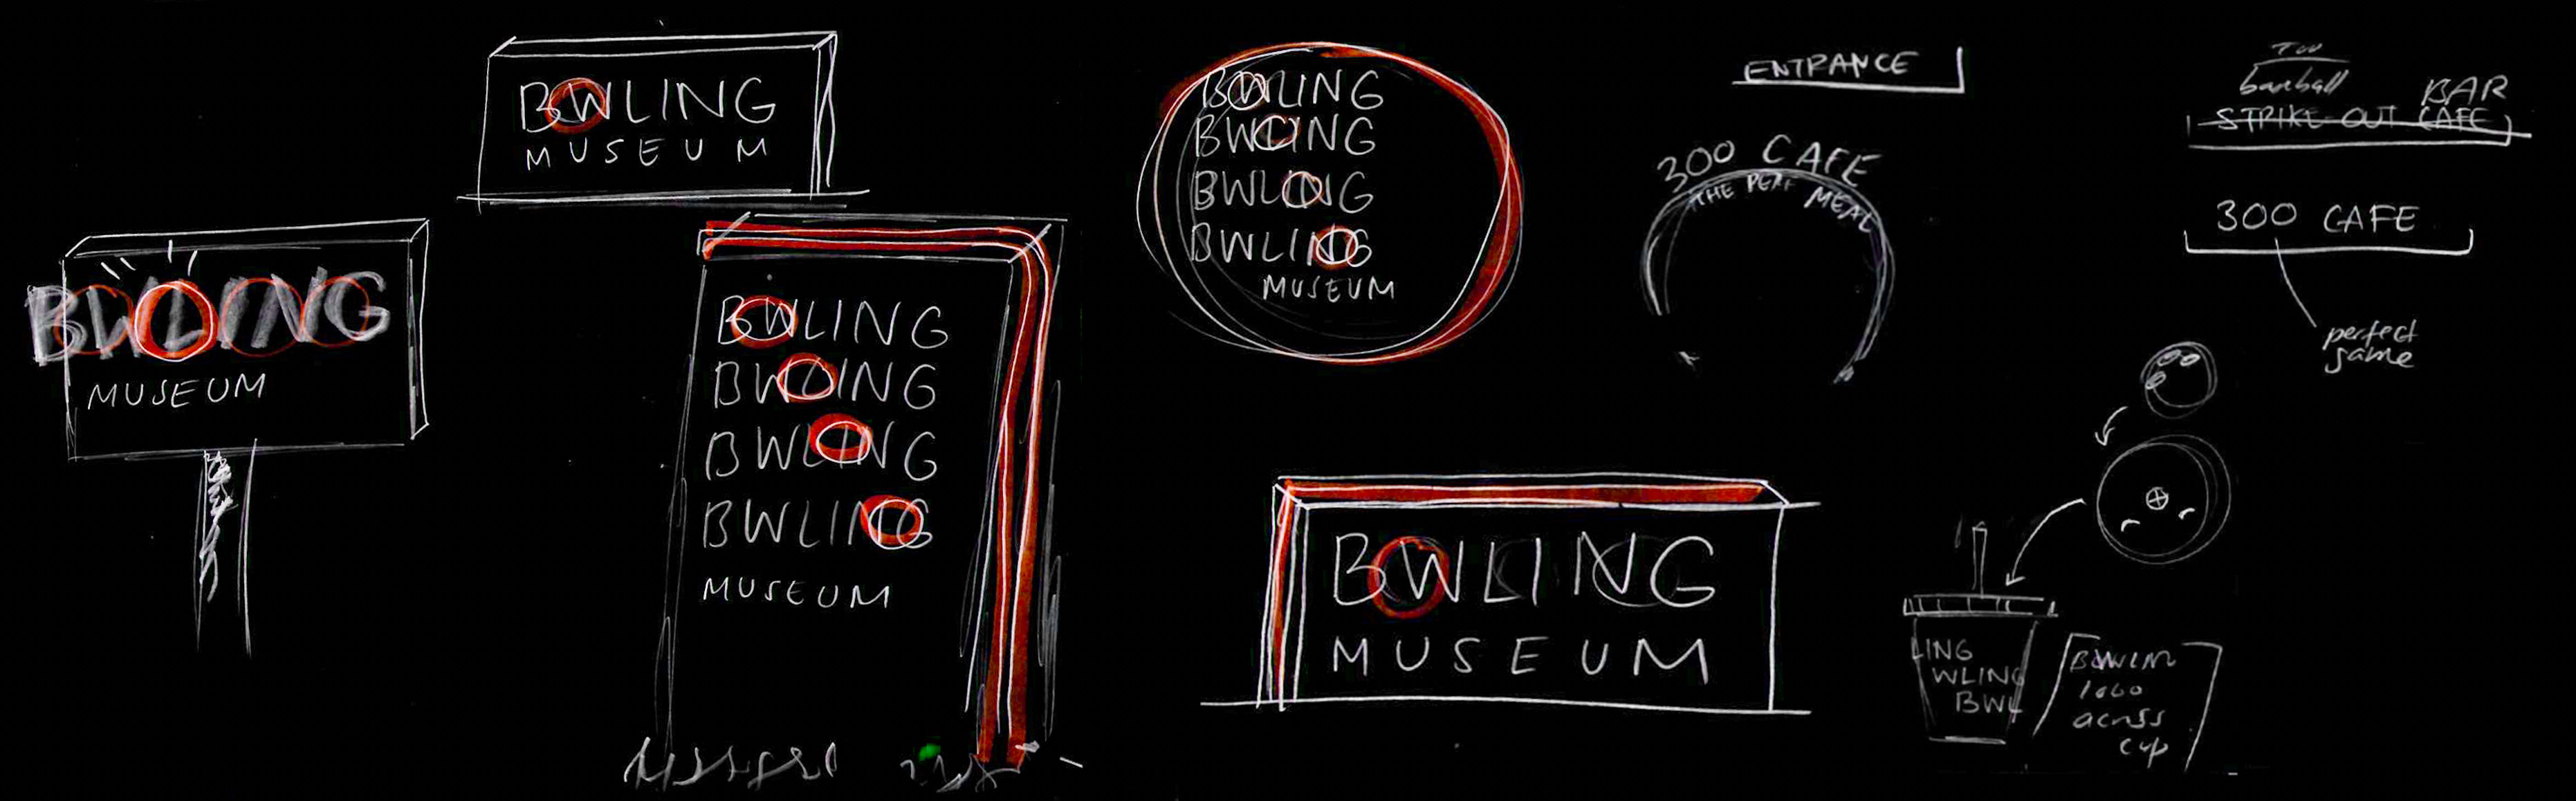 BOWLING
MUSEUM
BWLING
MUSEUM
BOWLING
BWLING
BWLING
BWLING
MUSEUM
BOWLING
BWLING
BWLING
BWLING
MUSEUM
ENTRANCE
300 CAFE
THE PERF MEAL
BOWLING
MUSEUM
TOO
baseball BAR
STRIKE OUT CAFE
300 CAFE
perfect
game
LING
WLING
BWL
BOWLING
logo
across
cup